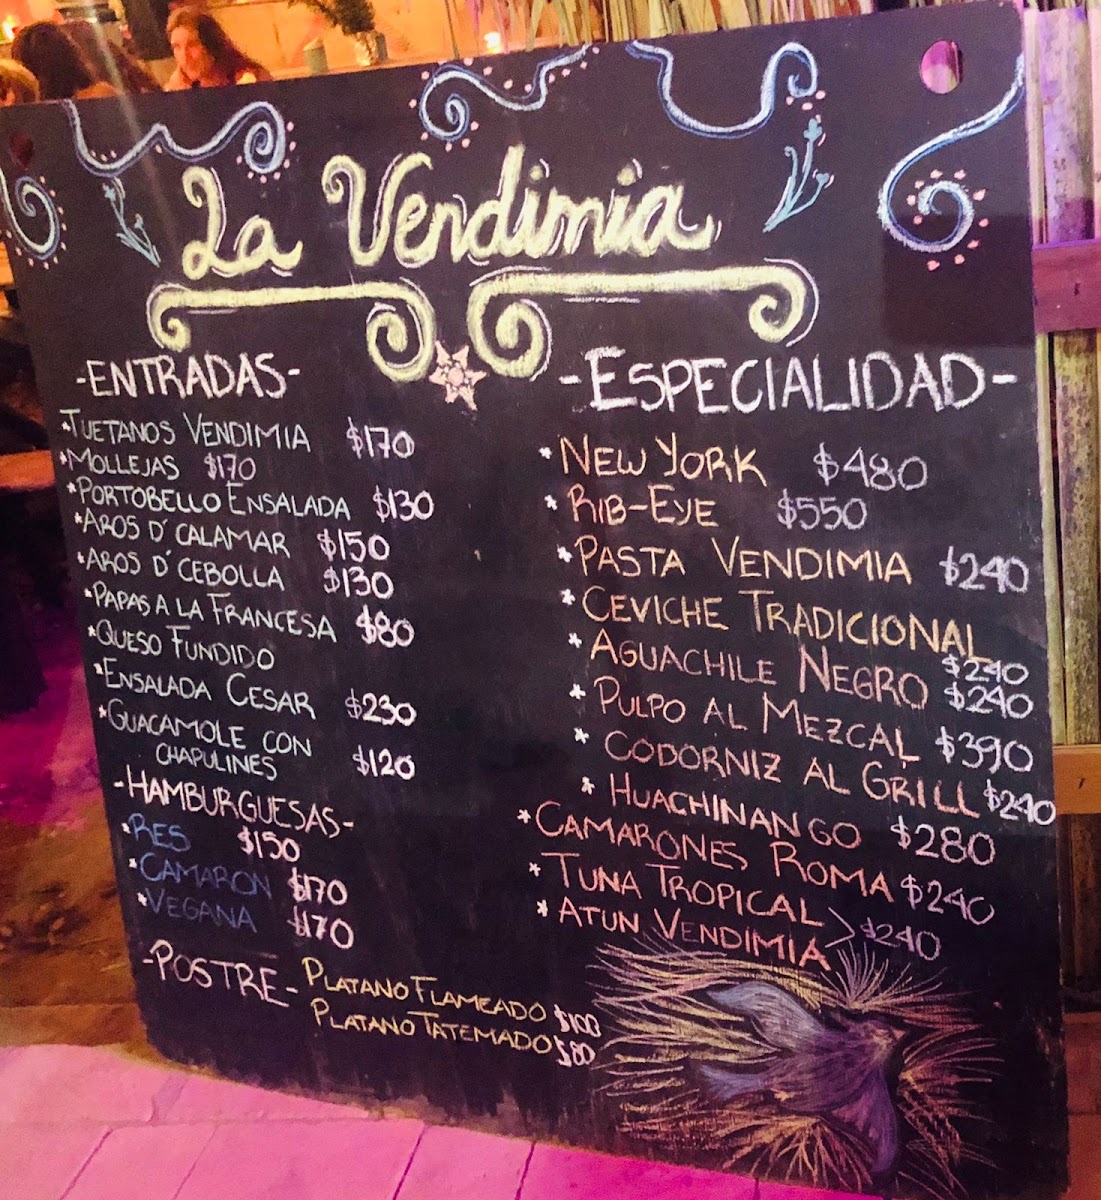 La Vendimia
-ENTRADAS-
*TUETANOS VENDIMIA $170
*MOLLEJAS $170
*PORTOBELLO ENSALADA $130
*AROS D'CALAMAR $150
*AROS D'CEBOLLA $130
*PAPAS A LA FRANCESA $80
*QUESO FUNDIDO
*ENSALADA CESAR $230
*GUACAMOLE CON
CHAPULINES $120
-HAMBURGUESAS-
*RES $150
*CAMARON $170
*VEGANA $170
-POSTRE-
PLATANO FLAMEADO $100
PLATANO TATEMADO $80
-ESPECIALIDAD-
*NEW YORK $480
*RIB-EYE $550
*PASTA VENDIMIA $240
*CEVICHE TRADICIONAL
$240
*AGUACHILE NEGRO $240
*PULPO AL MEZCAL $390
*CODORNIZ AL GRILL $240
*HUACHINANGO $280
*CAMARONES ROMA $240
*TUNA TROPICAL
*ATUN VENDIMIA > $240